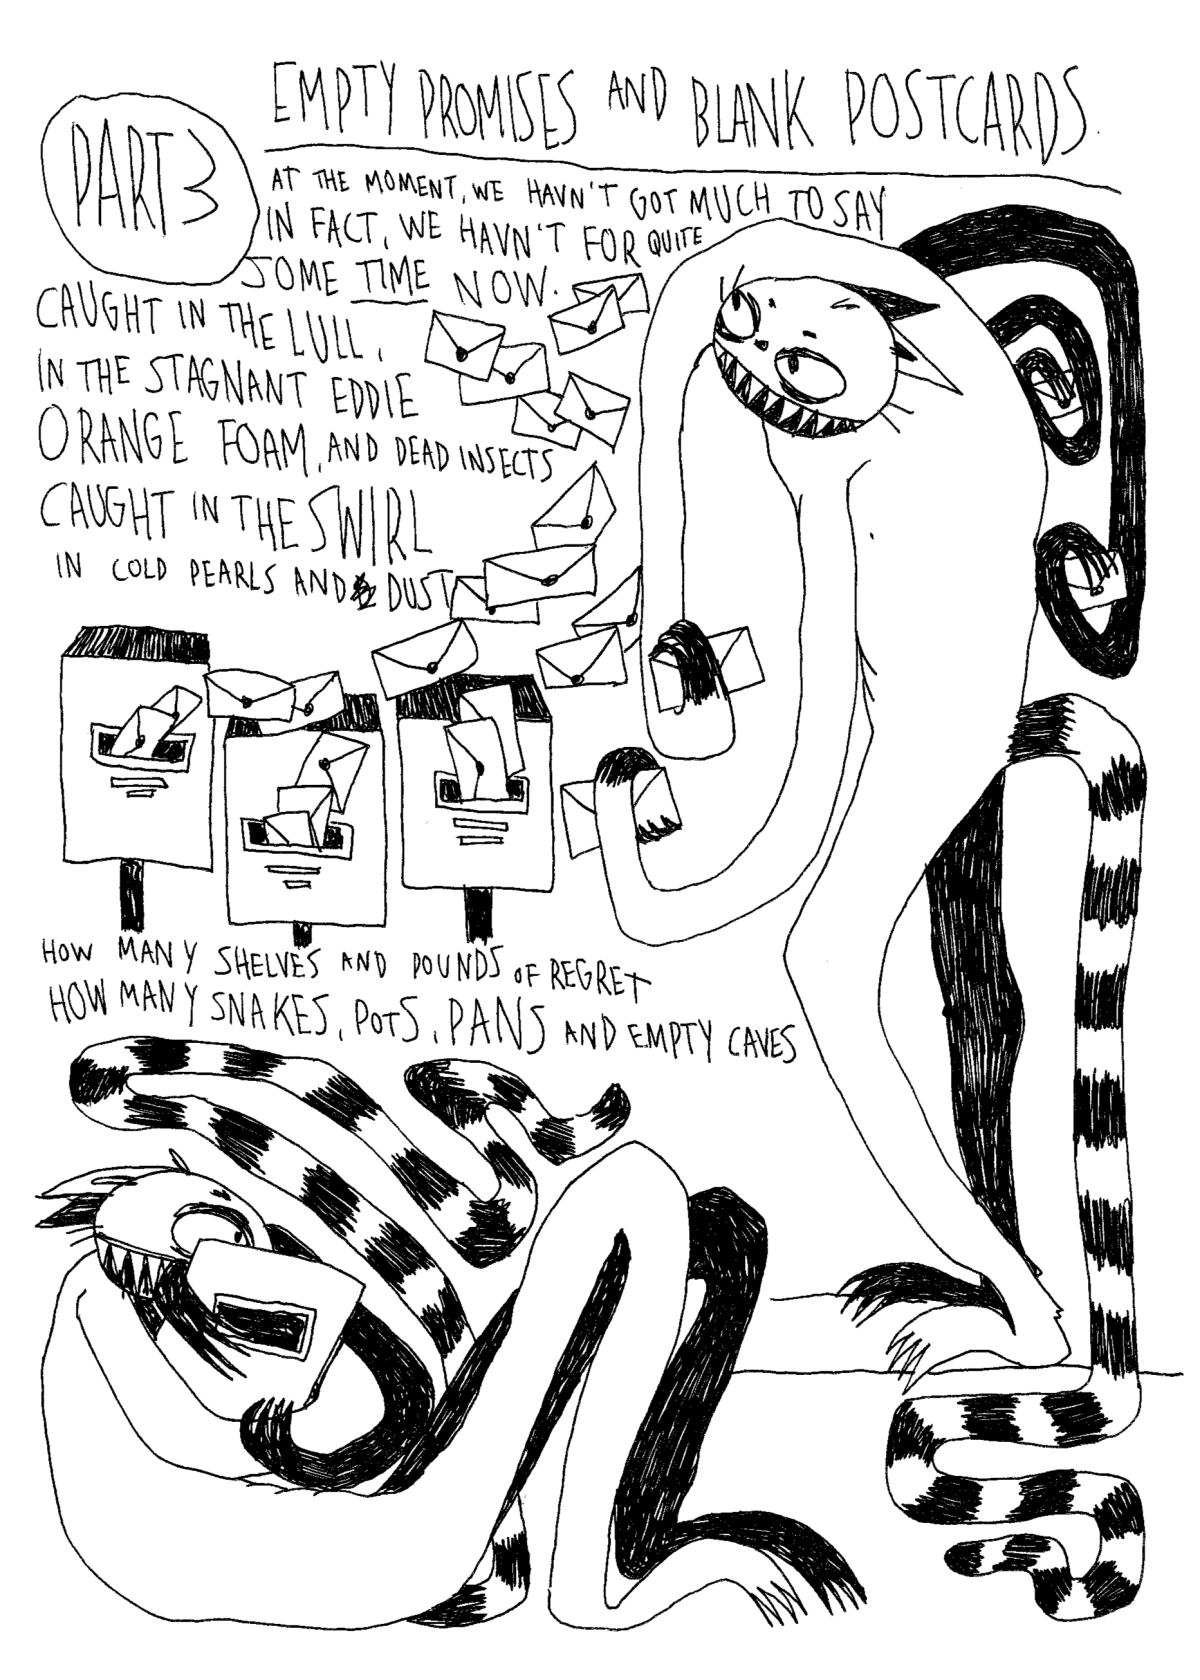 EMPTY PROMISES AND BLANK POSTCARDS.
PART 3
AT THE MOMENT, WE HAVN'T GOT MUCH TO SAY
IN FACT, WE HAVN'T FOR QUITE
SOME TIME NOW.
CAUGHT IN THE LULL,
IN THE STAGNANT EDDIE
ORANGE FOAM, AND DEAD INSECTS
CAUGHT IN THE SWIRL
IN COLD PEARLS AND DUST
HOW MANY SHELVES AND POUNDS OF REGRET
HOW MANY SNAKES, POTS, PANS AND EMPTY CAVES